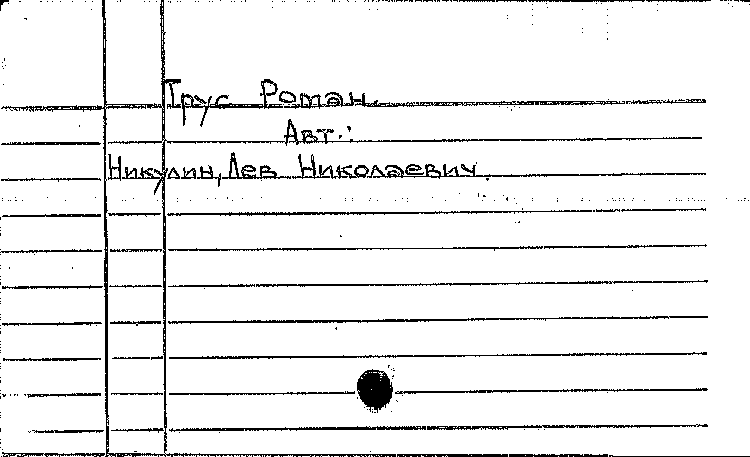 Трус Роман.
Авт.:
Никулин, Лев Николаевич.